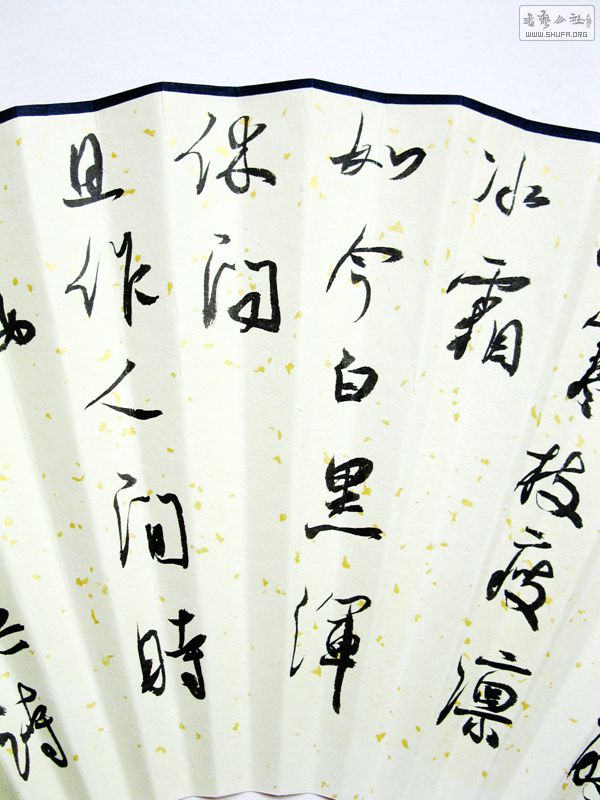 書藝公社
WWW.SHUFA.ORG
寒枝瘦凛
冰霜
如今白黑渾
休問
且作人間時
詩